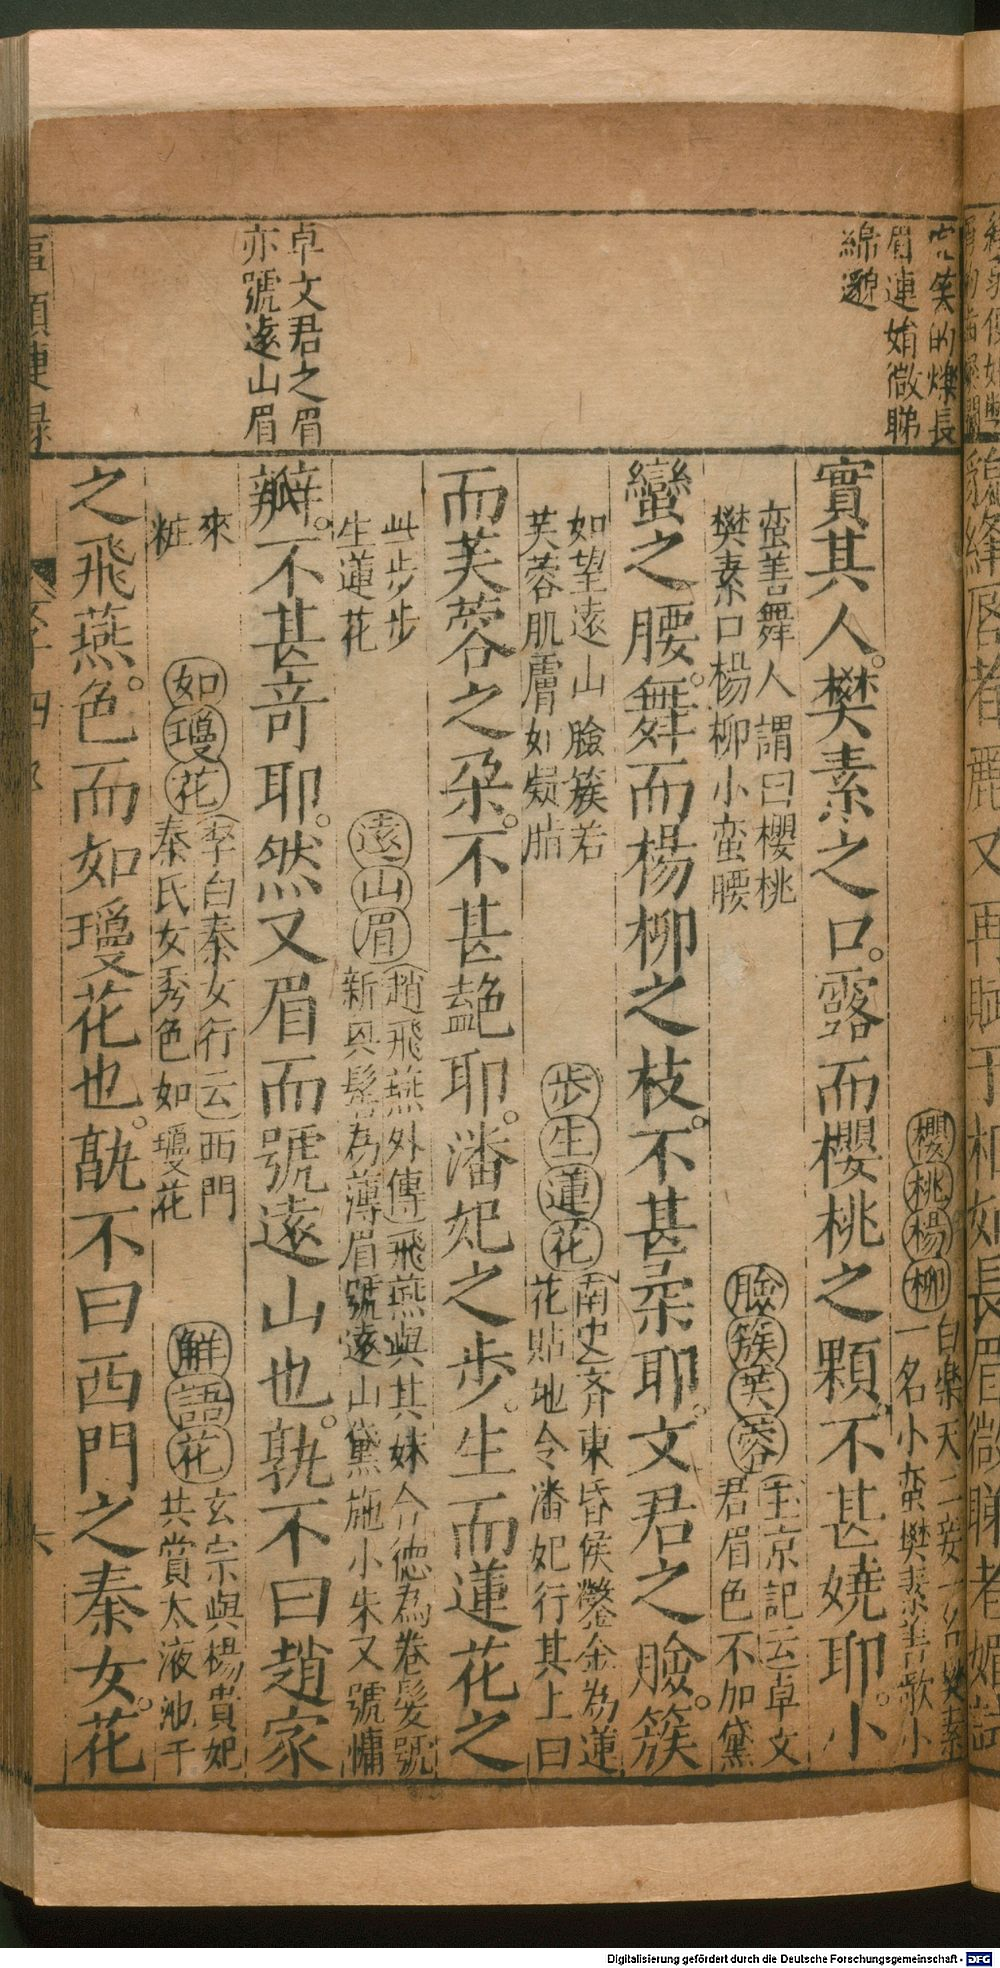 笑的爍長
眉連娟微睇
綿邈
卓文君之眉
亦號遠山眉
櫻桃楊柳
白樂天二妾一名樊素
一名小蛮樊素善歌小
實其人樊素之口。露而櫻桃之顆。不甚嬈耶。小
蛮善舞人謂曰櫻桃
樊素口楊柳小蛮腰
臉簇芙蓉
玉京記云卓文
君眉色不加黛
蠻之腰。舞而楊柳之枝。不甚柔耶。文君之臉。簇
如望遠山臉簇若
芙蓉肌膚如凝脂
步生蓮花
南史齐東昏侯鑿金為蓮
花貼地令潘妃行其上曰
而芙蓉之朶。不甚艶耶。潘妃之步。生而蓮花之
此步步
生蓮花
遠山眉
趙飛燕外傳飛燕與其妹合德為卷髮號
新興髻為薄眉號遠山黛施小朱又號慵
瓣。不甚竒耶。然又眉而號遠山也。孰不曰趙家
來
粧
如瓊花
李白秦女行云西門
秦氏女秀色如瓊花
解語花
玄宗與楊貴妃
共賞太液池千
之飛燕。色而如瓊花也。孰不曰西門之秦女。花
六
Digitalisierung gefördert durch die Deutsche Forschungsgemeinschaft - DFG